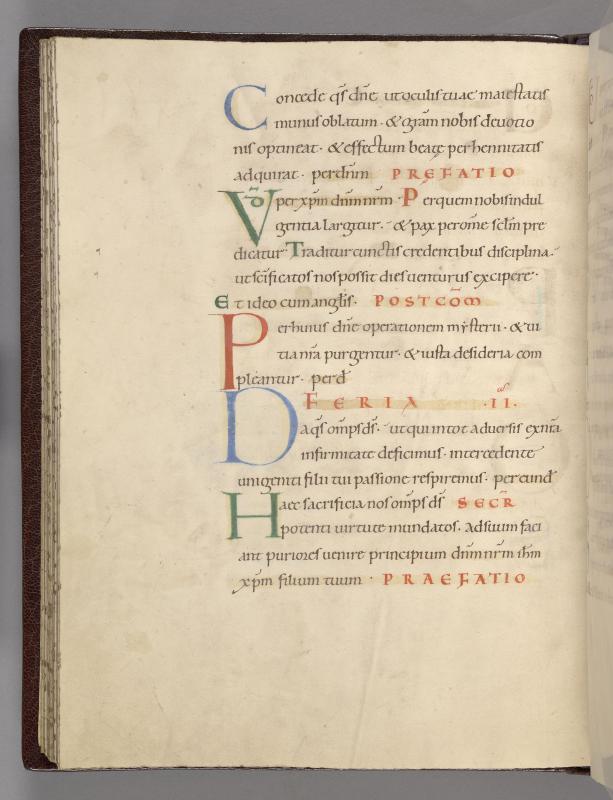 Concede qs dne utoculistuae maiestatis
munus oblatum · & gram nobis deuotio
nis optineat · & effectum beatę perhennitatis
adquirat · perdnm PREFATIO
VD perxpm dnmnrm · Per quem nobis indul
gentia largitur · & pax perome sclm pre
dicatur · Traditur cunctis credentibus disciplina ·
ut scificatos nos possit dies uenturus excipere ·
Et ideo cum anglis · POSTCOM
Per huius dne operationem mysterii · & ui
tia nra purgentur · & iusta desideria com
pleantur · perd
FERIA · II ·
Da qs omps ds · ut qui in tot aduersis ex nra
infirmitate deficimus · intercedente
unigeniti filii tui passione respiremus · per eund
Haec sacrificia nos omps ds SECR
potenti uirtute mundatos · ad suum faci
ant puriores uenire principium dnm nrm ihm
xpm filium tuum · PRAEFATIO